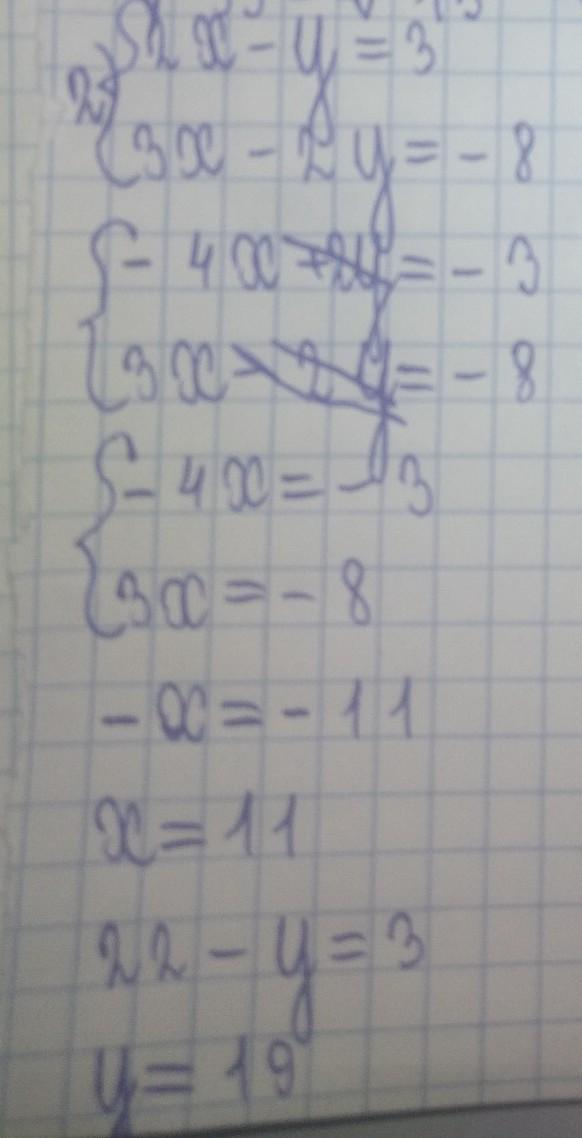 2 { 2x - y = 3
{ 3x - 2y = - 8
{ - 4x + 2y = - 3
{ 3x - 2y = - 8
{ - 4x = - 3
{ 3x = - 8
- x = - 11
x = 11
22 - y = 3
y = 19